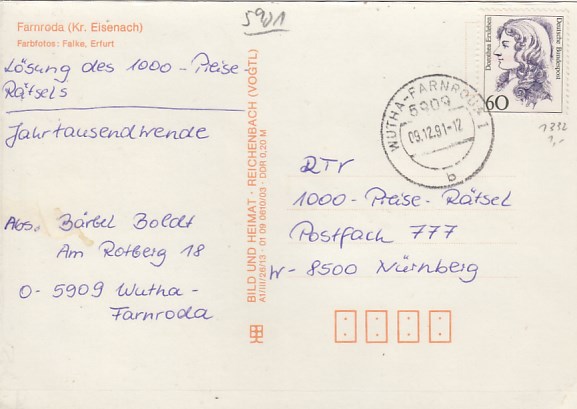 5901
Farnroda (Kr. Eisenach)
Farbfotos: Falke, Erfurt
Lösung des 1000-Preise
Rätsels
Jahrtausendwende
Abs. Bärbel Boldt
Am Rotberg 18
O-5909 Wutha-
Farnroda
BILD UND HEIMAT · REICHENBACH (VOGTL)
A1/III/26/13 · 01 09 0610/03 · DDR 0,20 M
WUTHA-FARNRODA 1
5909
09.12.91-12
b
Dorothea Erxleben
Deutsche Bundespost
60
1332
1,-
RTV
1000-Preise-Rätsel
Postfach 777
W-8500 Nürnberg